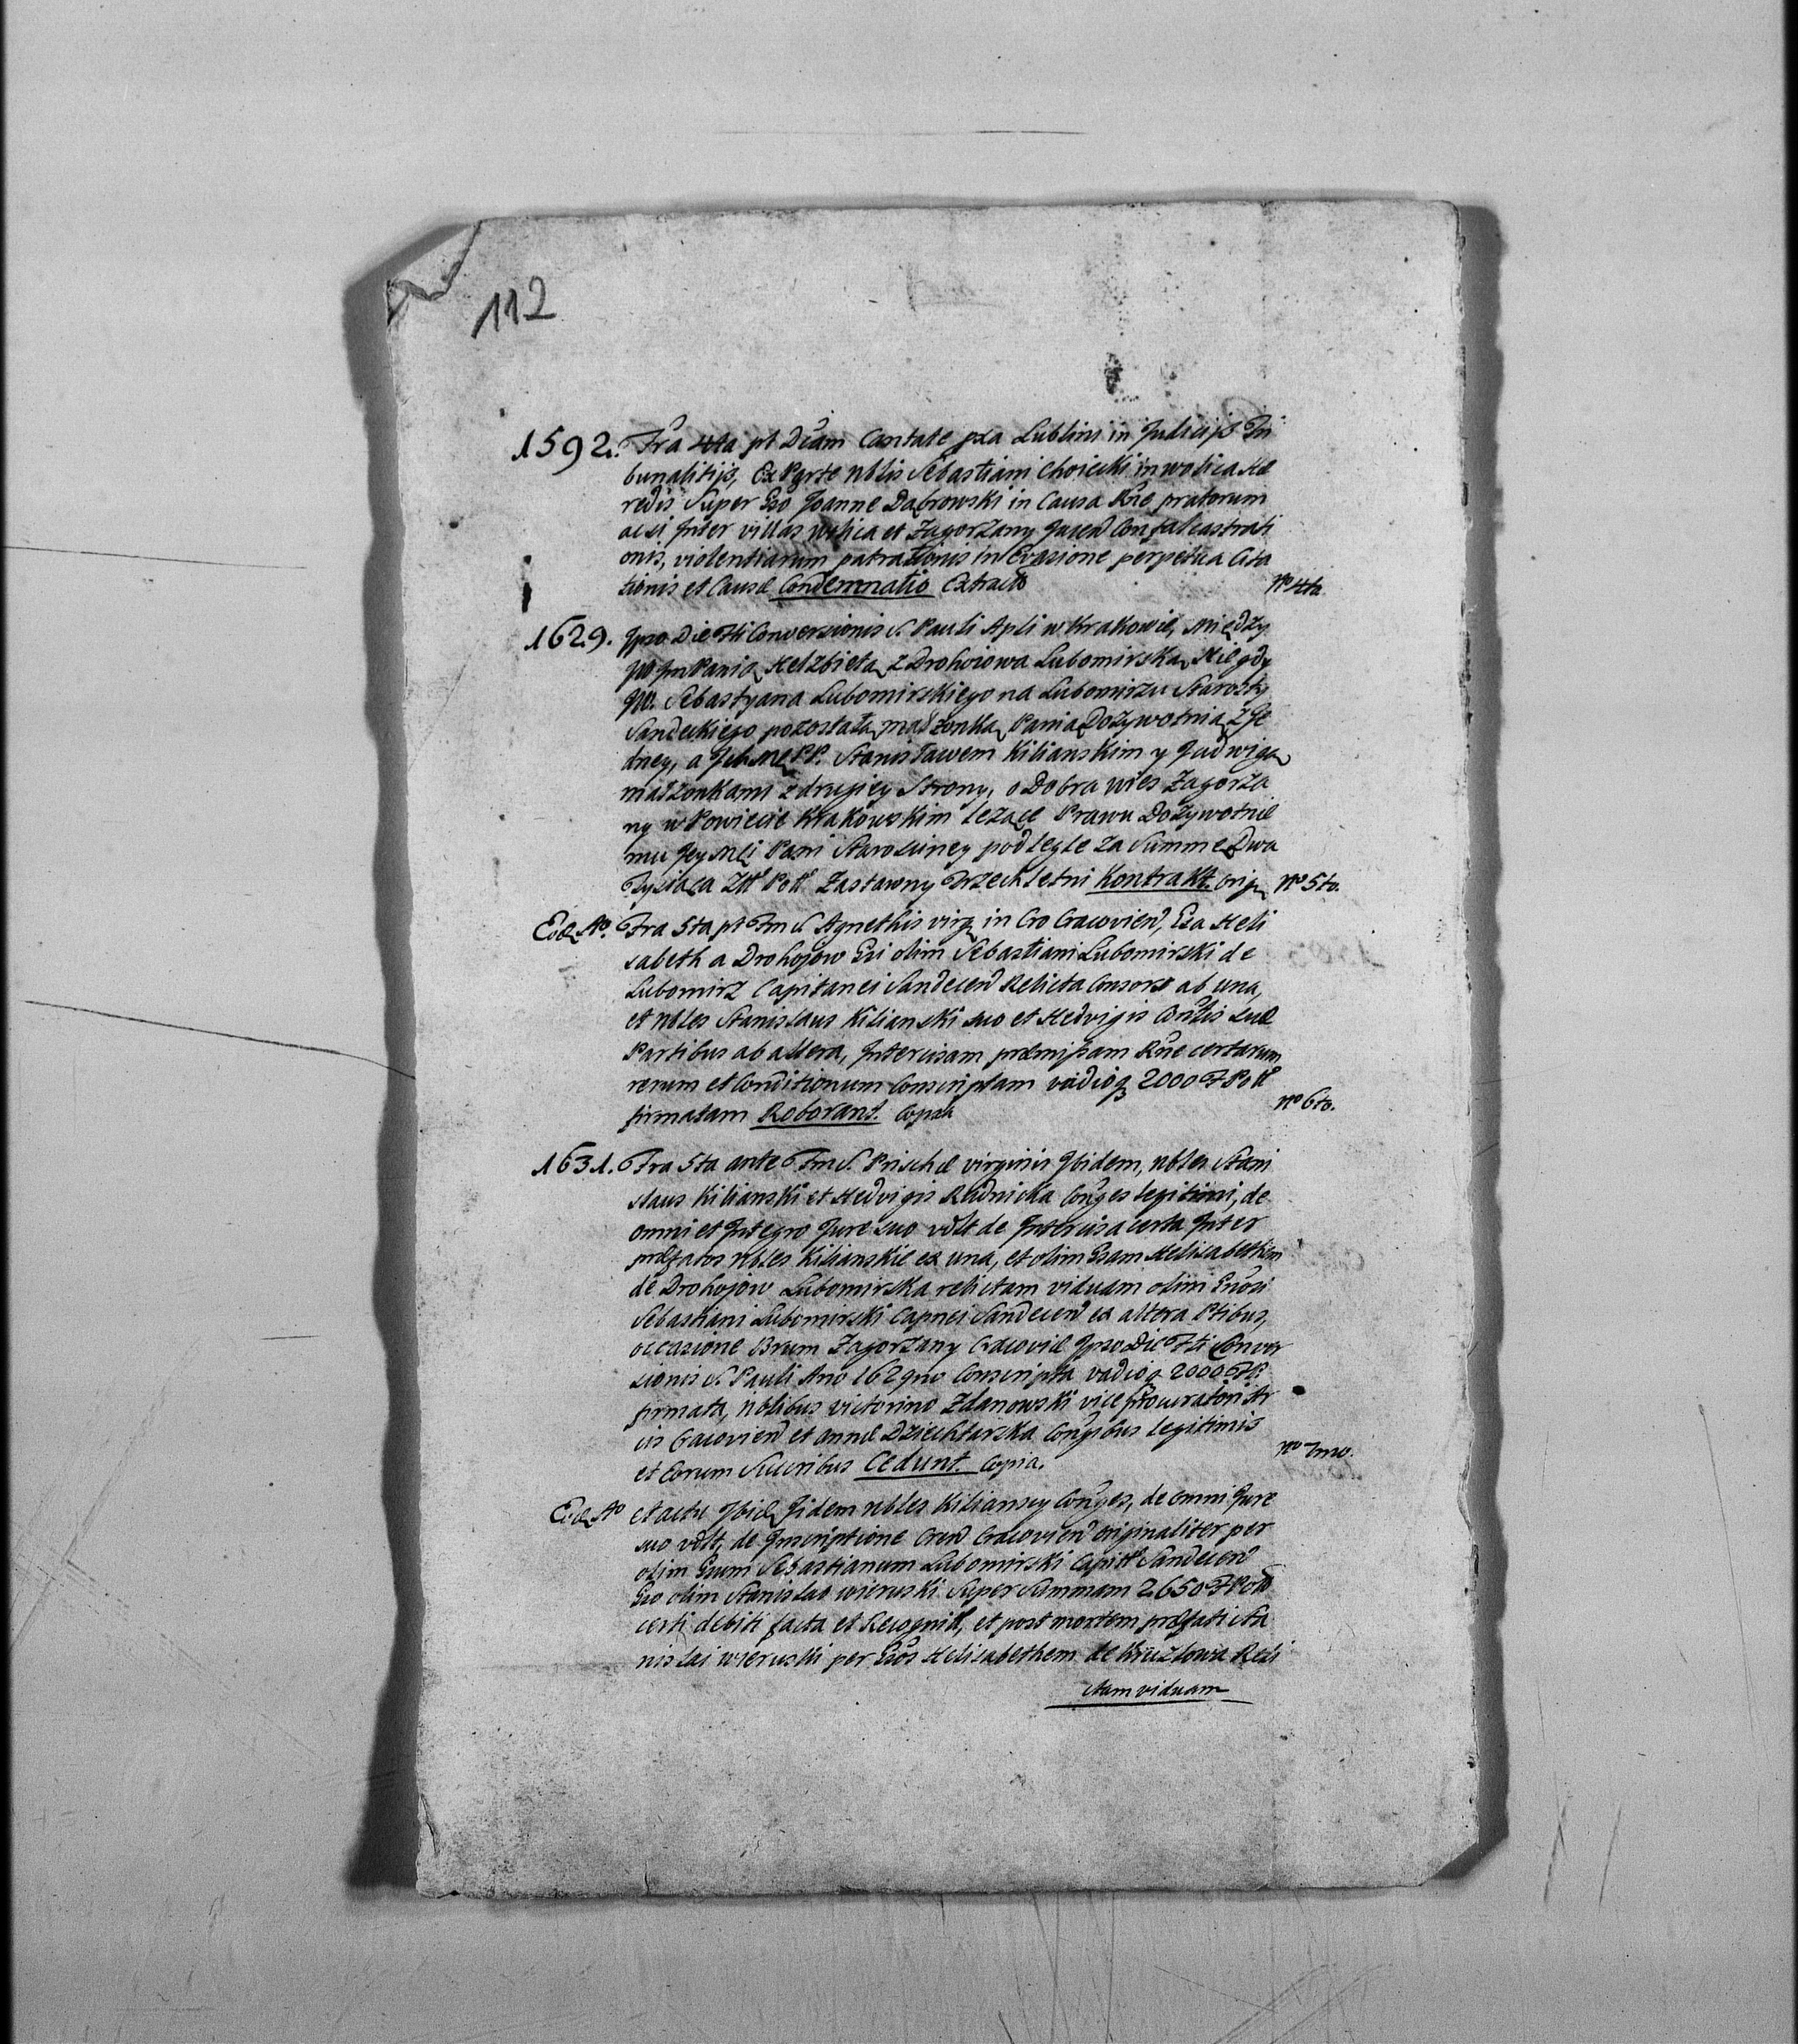 112
1592. Fra 4ta pt Dicam Cantate pxa Lublini in Judicijs Tri
bunalitijs, Ex Parte Nblis Sebastiani Choiecki in Wolica Hæ
redis Super Gso Joanne Dąbrowski in Causa Rne pratorum
acsi Inter villas Wolica et Zagorzany
onis, violentiarum patrationis in Evasione perpetua Cita
tionis et Causæ Condemnatio Extracto No 4to
1629. Ipso Die Fti Conversionis S. Pauli Apli w Krakowie, Między
JW JmPanią Helzbietą z Drohoiowa Lubomirską, Niegdy
JW. Sebastyana Lubomirskiego na Lubomirzu Starosty
Sandeckiego pozostałą małżonką, Panią Dożywotnią z Je
dney, a Ich Mę PP. Stanisławem Kilianskim y Jadwigą
małżonkami z drugiey Strony, o Dobra wies Zagorza
ny w Powiecie Krakowskim leżące Prawu Dożywotnie
mu Jey Mći Pani Starosciney podległe za Summę Dwa
Tysiąca Złł Poll Zastawny Trzechletni Kontrakt. Orig No 5to.
Eod Ao. Fra 5ta pt Fm S. Agnethis virg in Cro Cracovien, Gsa Heli
sabeth a Drohojow Gsi olim Sebastiani Lubomirski de
Lubomirz Capitanei Sandecen Relicta Consors ab una,
et Nbles Stanislaus Kilianski suo et Hedvigis Cortis suæ
Partibus ab altera, Intercisam præmissam Rne certarum
rerum et Conditionum Conscriptam vadioq 2000 F Poll
firmatam Roborant. Copia No 6to.
1631. Fra 5ta ante Fm S. Priscæ virginis Ibidem, Nbles Stani
slaus Kilianski et Hedvigis Rudnicka Conges legitimi, de
omni et Integro Jure suo vdlt de Intercisa certa Inter
præfatos Nbles Kilianskie ex una, et olim Gsam Helisabethem
de Drohojow Lubomirska relictam viduam olim Gnosi
Sebastiani Lubomirski Capnei Sandecen ex altera Ptibus,
occasione Brum Zagorzany Cracoviæ Ipso Die Fti Conver
sionis S. Pauli Ano 1629no Conscripta vadioq 2000 FP.
firmata, Nblibus Victorino Zdanowski vice procuratori Ar
cis Cracovien et Annæ Dziechtarska Congibus legitimis
et Eorum Succribus Cedunt. Copia. No 7mo.
Eod Ao et actu Ibid Iidem Nbles Kilianscy Conges, de omni Jure
suo vdlt, de Inscriptione Cren Cracovien originaliter per
olim Gsum Sebastianum Lubomirski Capitł Sandecen
Gso olim Stanislao Wieruski Super Summam 2650 F Poll
certi debiti facta et Recognitł, et post mortem præfati Sta
nislai Wieruski per Gsos Helisabethem de Kruzlowa Reli
ctam viduam